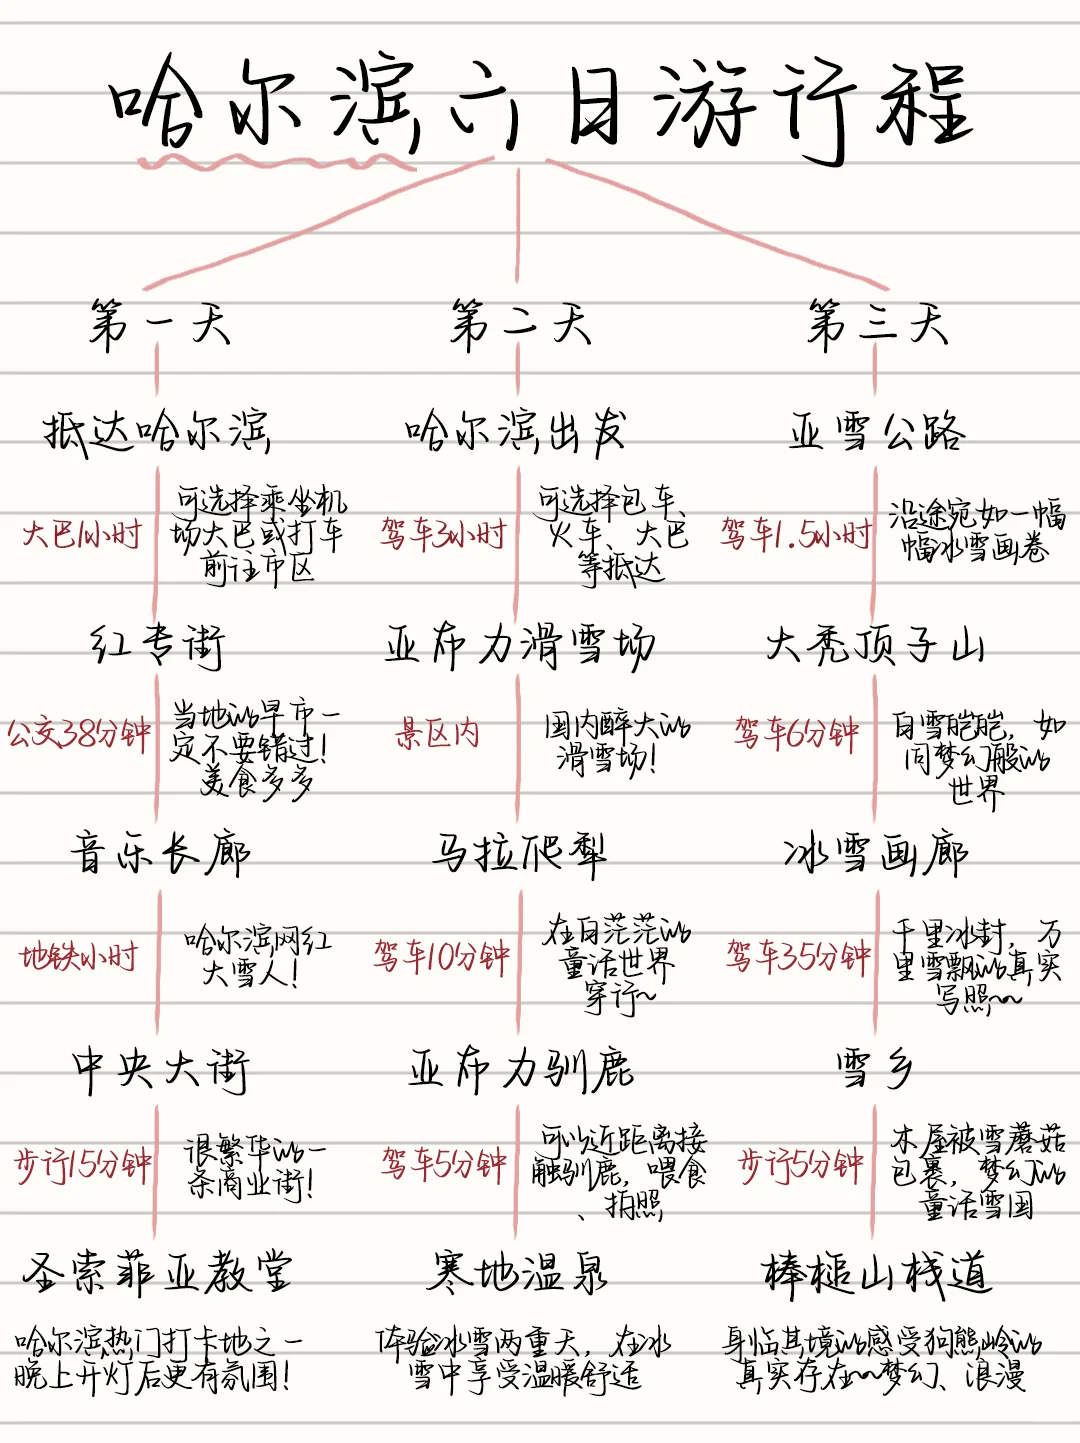 哈尔滨六日游行程
第一天
抵达哈尔滨
大巴1小时
可选择乘坐机
场大巴或打车
前往市区
红专街
公交38分钟
当地的早市一
定不要错过!
美食多多
音乐长廊
地铁小时
哈尔滨网红
大雪人!
中央大街
步行15分钟
很繁华的一
条商业街!
圣索菲亚教堂
哈尔滨热门打卡地之一
晚上开灯后更有氛围!
第二天
哈尔滨出发
驾车3小时
可选择包车、
火车、大巴
等抵达
亚布力滑雪场
景区内
国内醉大的
滑雪场!
马拉爬犁
驾车10分钟
在白茫茫的
童话世界
穿行~
亚布力驯鹿
驾车5分钟
可以近距离接
触驯鹿,喂食
、拍照
寒地温泉
体验冰雪两重天,在冰
雪中享受温暖舒适
第三天
亚雪公路
驾车1.5小时
沿途宛如一幅
幅冰雪画卷
大秃顶子山
驾车6分钟
白雪皑皑,如
同梦幻般的
世界
冰雪画廊
驾车35分钟
千里冰封,万
里雪飘的真实
写照~~
雪乡
步行5分钟
木屋被雪蘑菇
包裹,梦幻的
童话雪国
棒槌山栈道
身临其境的感受狗熊岭的
真实存在~~梦幻、浪漫